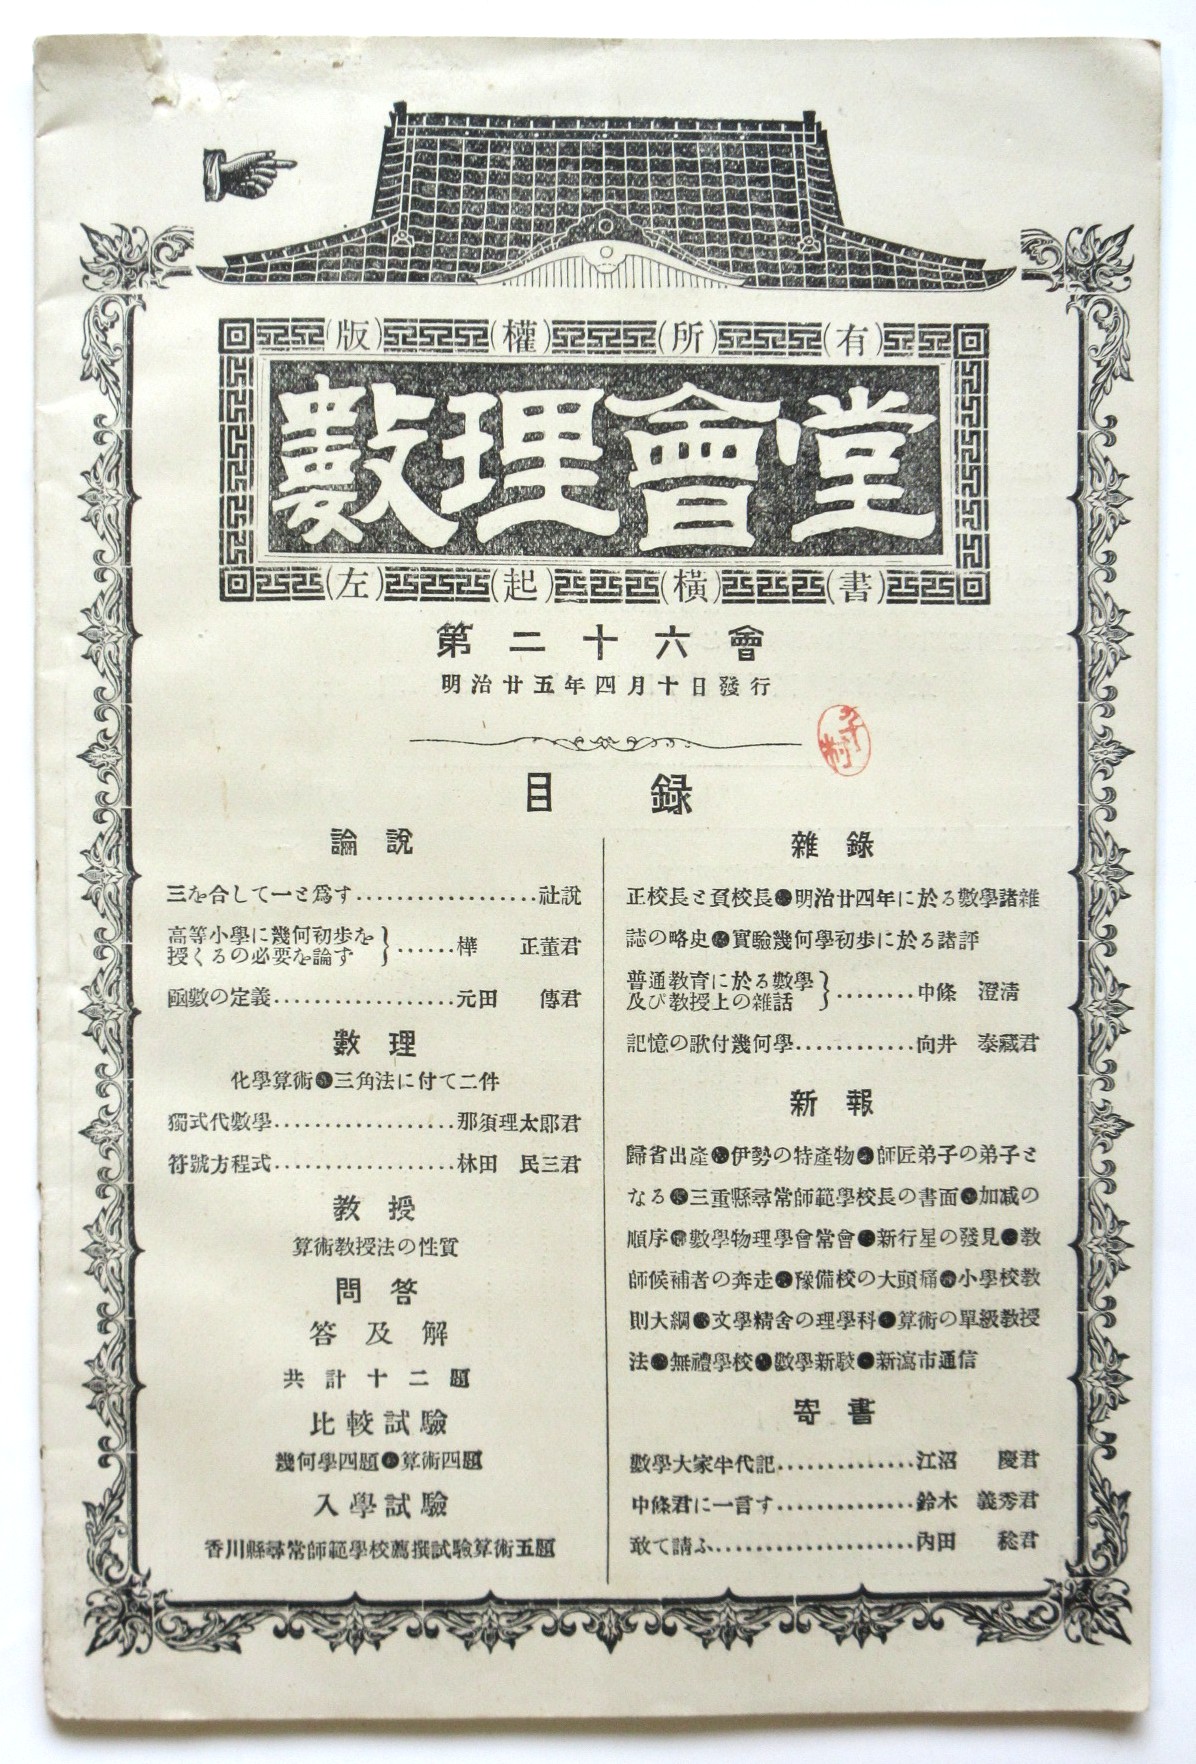 (版)(權)(所)(有)
數理會堂
(左)(起)(橫)(書)
第二十六會
明治廿五年四月十日發行
目錄
論說
三を合して一と爲す..................社說
高等小學に幾何初歩を
授くるの必要を論ず}......樺 正董君
函數の定義..................元田 傳君
數理
化學算術●三角法に付て二件
獨式代數學..................那須理太郎君
符號方程式..................林田 民三君
敎授
算術敎授法の性質
問答
答及解
共計十二題
比較試驗
幾何學四題●算術四題
入學試驗
香川縣尋常師範學校薦撰試驗算術五題
雜錄
正校長と頁校長●明治廿四年に於る數學諸雜
誌の略史●實驗幾何學初歩に於る諸評
普通敎育に於る數學
及び敎授上の雜話}........中條 澄淸
記憶の歌付幾何學............向井 泰藏君
新報
歸省出產●伊勢の特產物●師匠弟子の弟子と
なる●三重縣尋常師範學校長の書面●加减の
順序●數學物理學會常會●新行星の發見●敎
師候補者の奔走●豫備校の大頭痛●小學校敎
則大綱●文學精舍の理學科●算術の單級敎授
法●無禮學校●數學新駁●新瀉市通信
寄書
數學大家半代記..............江沼 慶君
中條君に一言す..............鈴木 義秀君
敢て請ふ.....................內田 稔君